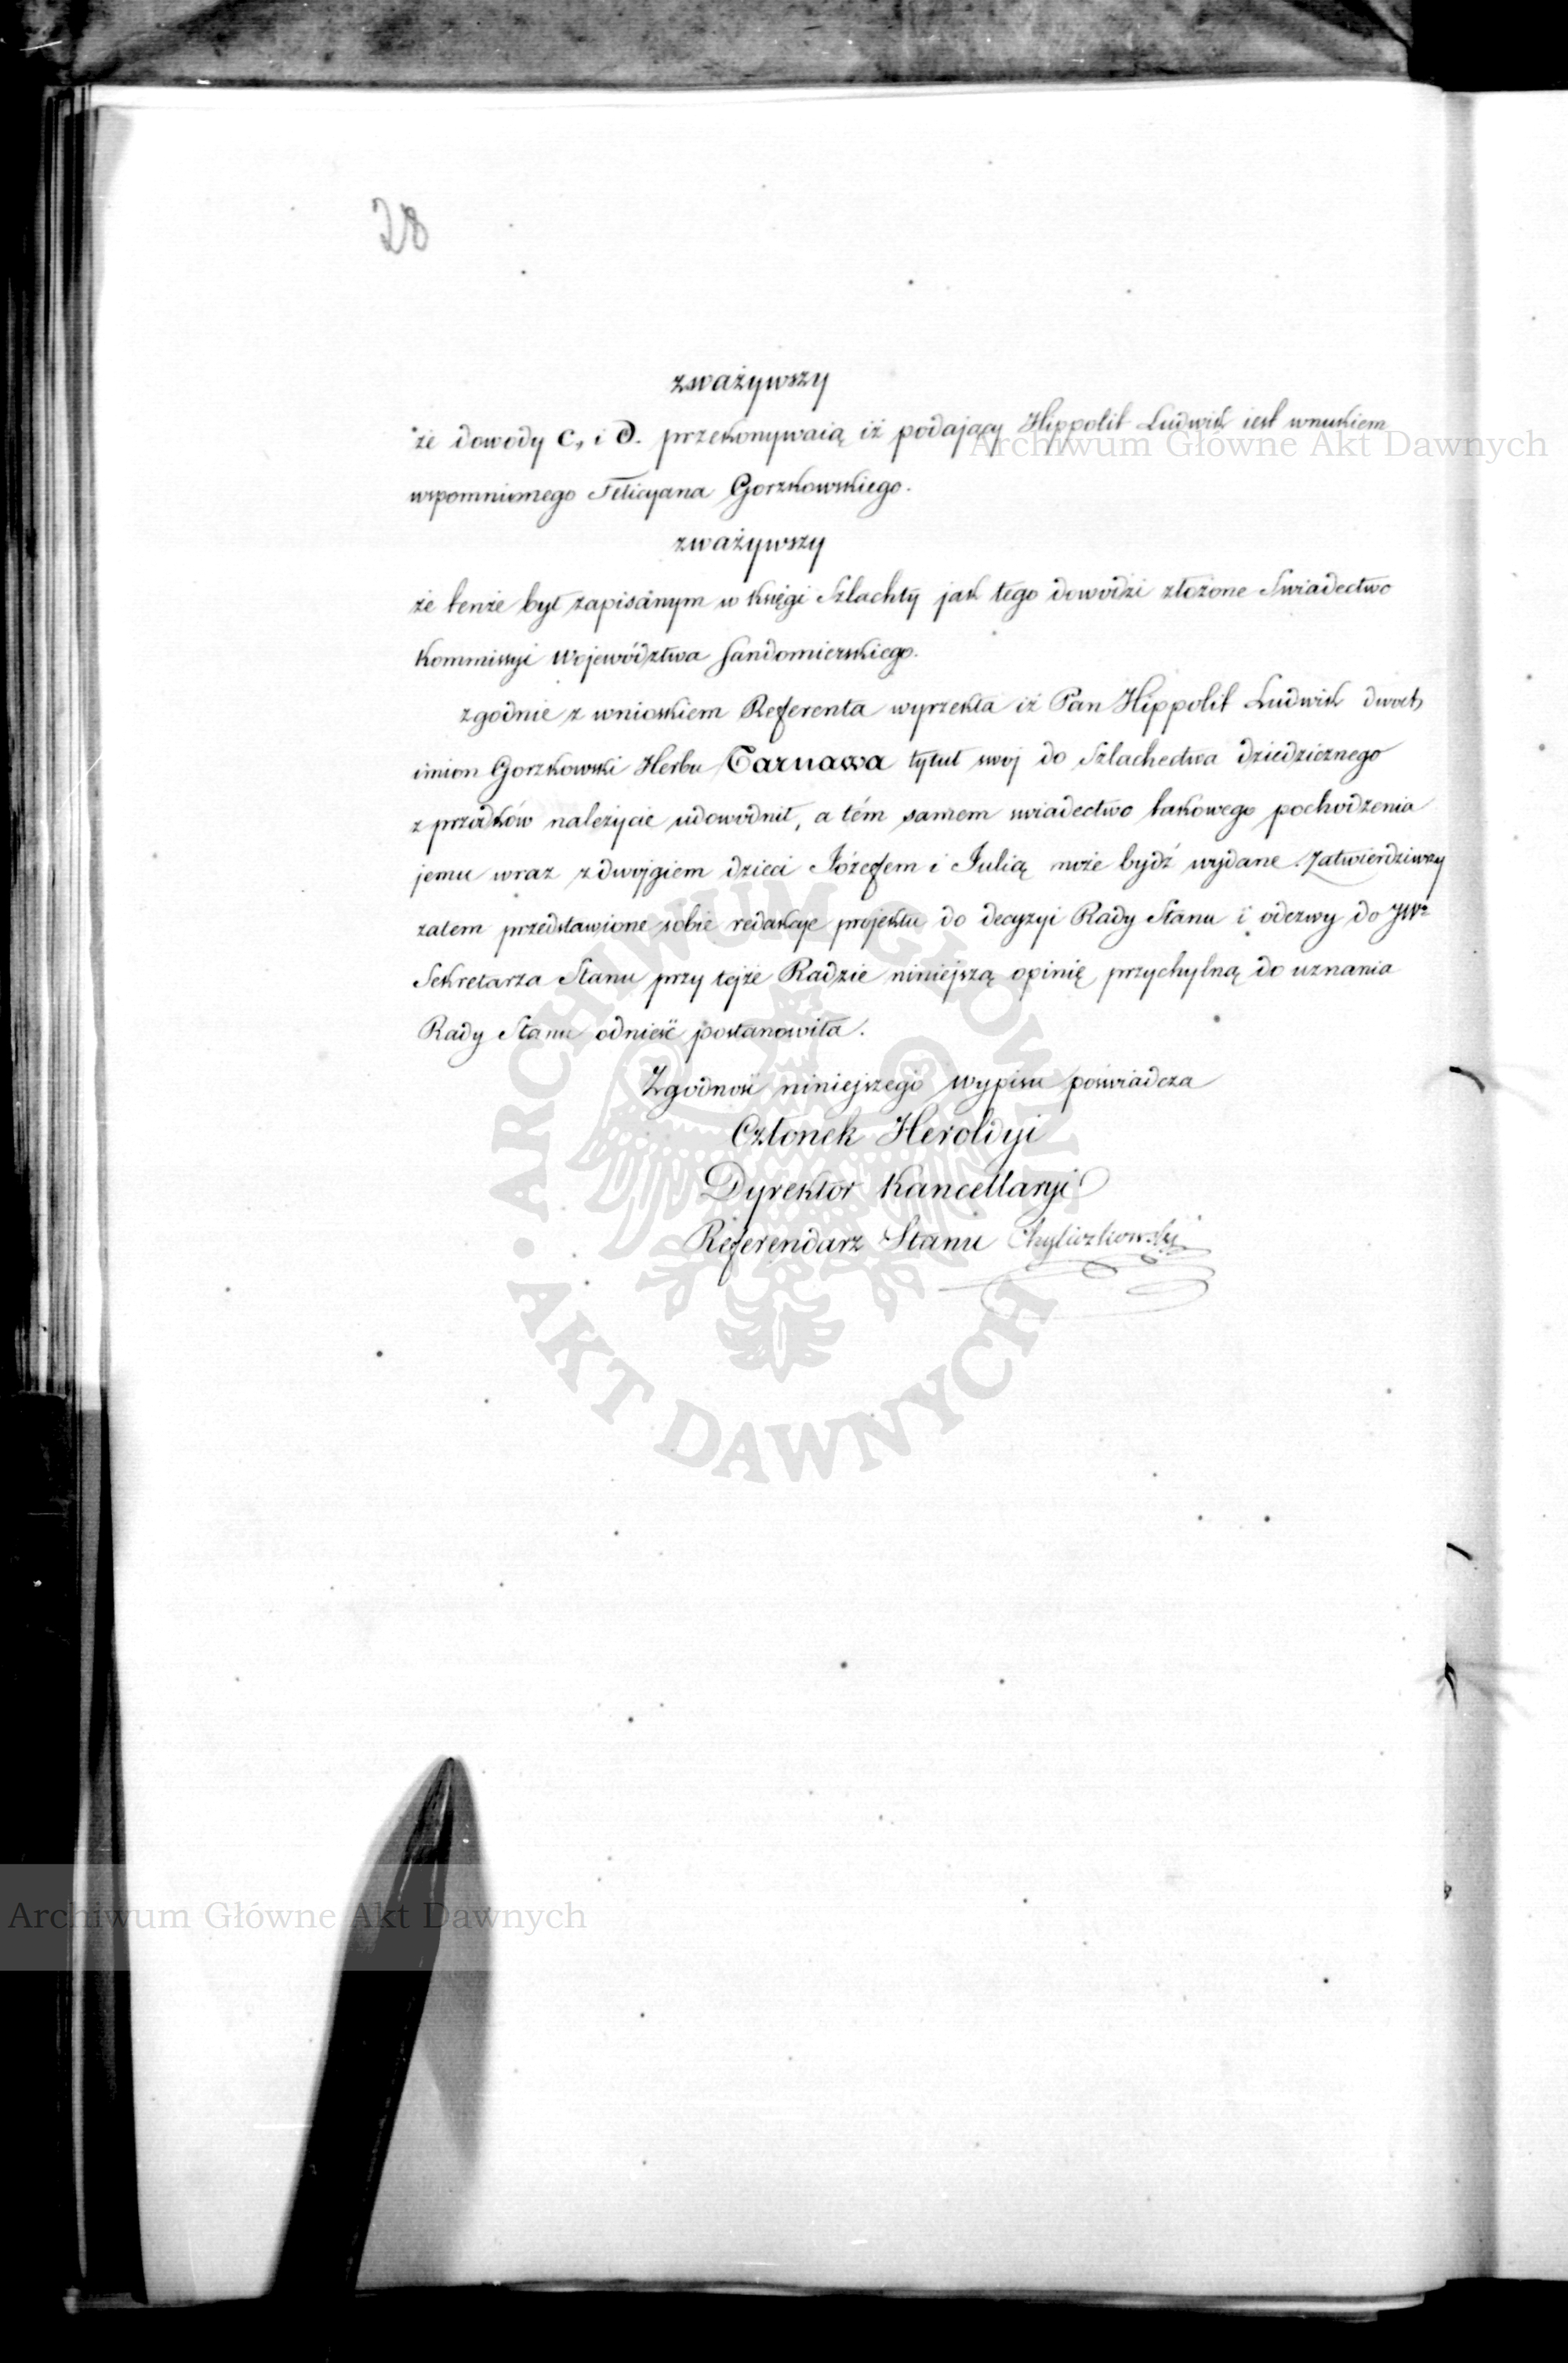 28
zważywszy
że dowody C, i D. przekonywaią iż podający Hippolit Ludwik iest wnukiem
Archiwum Główne Akt Dawnych
wspomnionego Felicyana Gorzkowskiego.
zważywszy
że tenże był zapisanym w księgi Szlachty jak tego dowodzi złożone Swiadectwo
Kommissyi Województwa Sandomierskiego.
zgodnie z wnioskiem Referenta wyrzekła iż Pan Hippolit Ludwik dwoch
imion Gorzkowski Herbu Tarnawa tytuł swoj do Szlachectwa dziedzicznego
z przodków należycie udowodnił, a tém samem swiadectwo takowego pochodzenia
jemu wraz z dwojgiem dzieci Józefem i Julią może bydź wydane. Zatwierdziwszy
zatem przedstawione sobie redakcye projektu do decyzyi Rady Stanu i odezwy do JWo
Sekretarza Stanu przy tejże Radzie niniejszą opinię przychylną do uznania
Rady Stanu odnieść postanowiła.
Zgodność niniejszego wypisu poświadcza
Członek Heroldyi
Dyrektor Kancellaryi
Referendarz Stanu Chyliczkowski
ARCHIWUM GŁÓWNE
• AKT DAWNYCH
Archiwum Główne Akt Dawnych